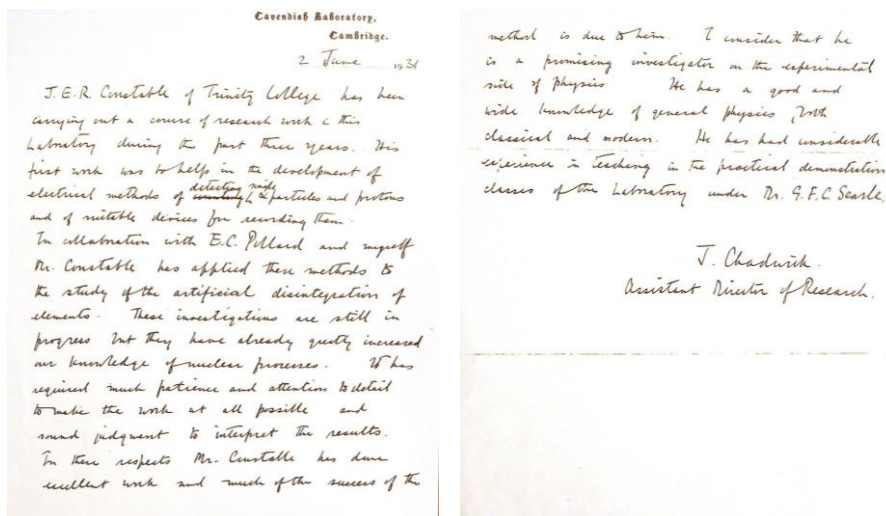 Cavendish Laboratory,
Cambridge.
2 June 1931
J.E.R. Constable of Trinity College has been
carrying out a course of research work in this
Laboratory during the past three years. His
first work was to help in the development of
detecting single
electrical methods of counting α particles and protons
and of suitable devices for recording them.
In collaboration with E.C. Pollard and myself
Mr. Constable has applied these methods to
the study of the artificial disintegration of
elements. These investigations are still in
progress but they have already greatly increased
our knowledge of nuclear processes. It has
required much patience and attention to detail
to make the work at all possible and
sound judgment to interpret the results.
In these respects Mr. Constable has done
excellent work and much of the success of the
method is due to him. I consider that he
is a promising investigator on the experimental
side of physics He has a good and
wide knowledge of general physics, both
classical and modern. He has had considerable
experience in teaching in the practical demonstration
classes of the Laboratory under Dr. G.F.C. Searle.
J. Chadwick.
Assistant Director of Research.